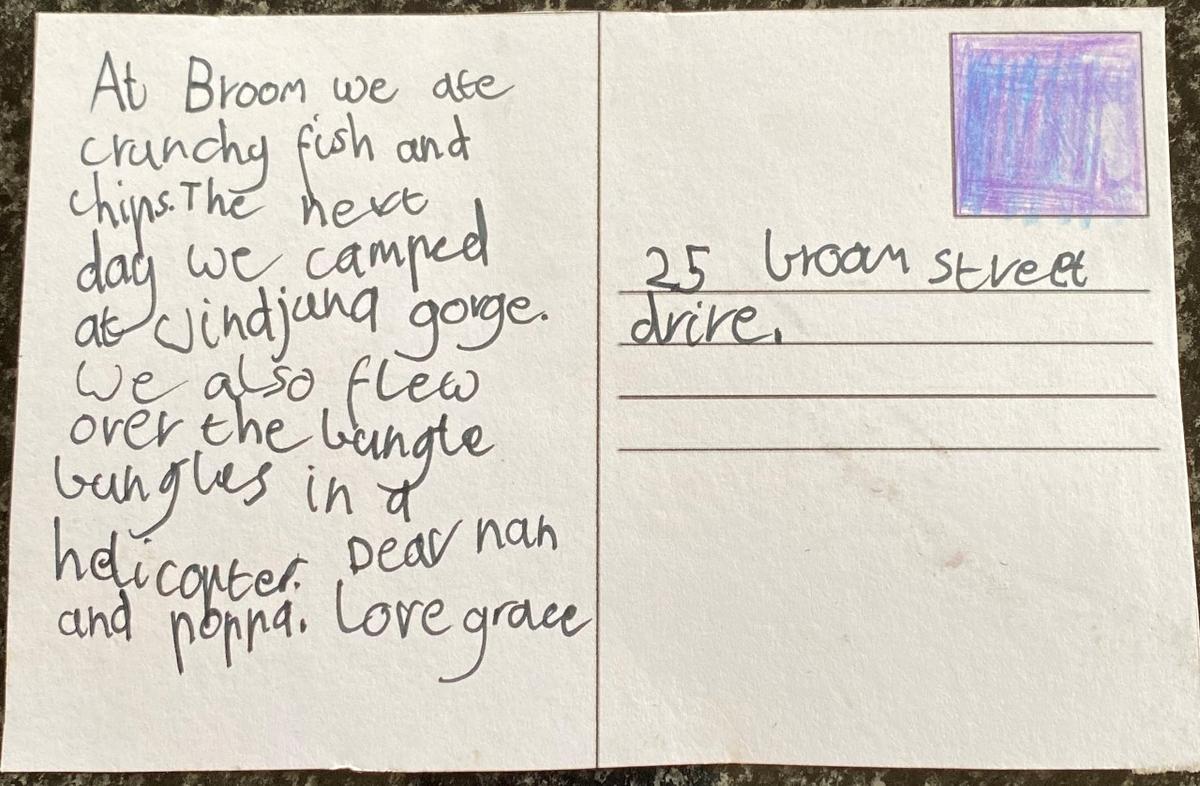 At Broom we ate
crunchy fish and
chips. The next
day we camped
at Jindjana gorge.
We also flew
over the bungle
bungles in a
helicopter. Dear nan
and poppa. Love grace
25 broom street
drive.